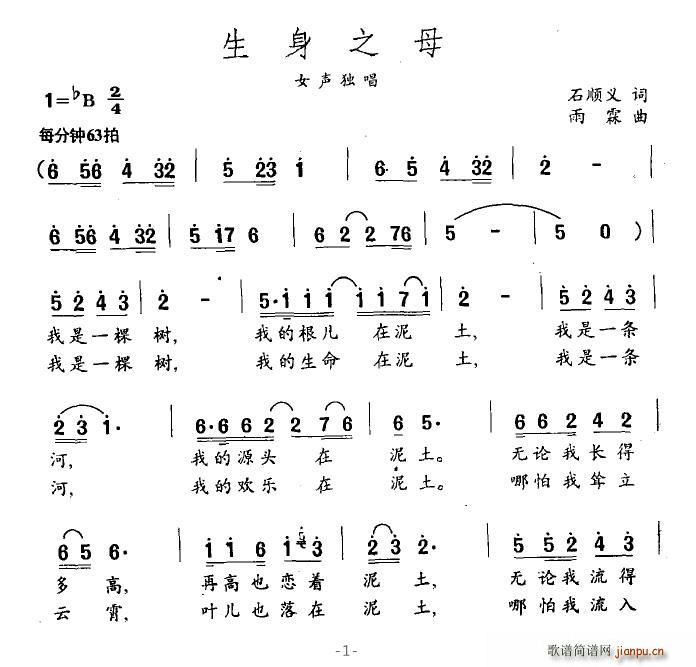 生身之母
女声独唱
1=♭B 2/4
石顺义 词
每分钟63拍
雨霖 曲
(6 56 4 32 | 5 23 1 | 6· 5 4 32 | 2 - |
6 56 4 32 | 5 17 6 | 6 2 2 76 | 5 - | 5 0 ) |
5 2 4 3 | 2 - | 5· 1 1 1 1 1 7 1 | 2 - | 5 2 4 3 |
我是一棵 树, 我的根儿 在泥 土, 我是一条
我是一棵 树, 我的生命 在泥 土, 我是一条
2 3 1· | 6· 6 6 2 2 7 6 | 6 5· | 6 6 2 4 2 |
河, 我的源头 在 泥 土。 无论我长得
河, 我的欢乐 在 泥 土。 哪怕我耸立
6 5 6· | 1 1 6 1 3 | 2 3 2· | 5 5 2 4 3 |
多 高, 再高也恋着 泥 土, 无论我流得
云 霄, 叶儿也落在 泥 土, 哪怕我流入
-1-
歌谱简谱网 jianpu.cn